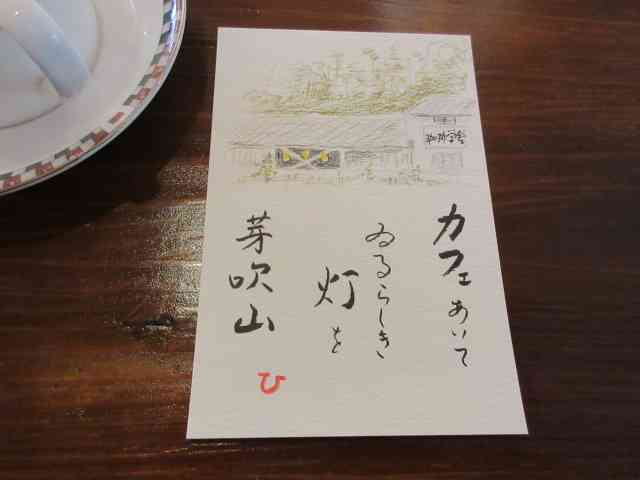 カフェあいて
ゐるらしき
灯を
芽吹山
ひ